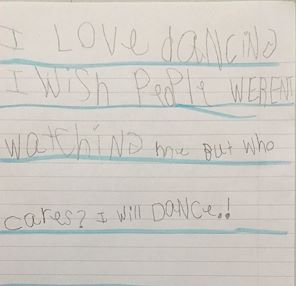 I LOVE daNCiNG
I WisH PeoPle WERENT
watchiNG me But who
cares? I will DANCe!!